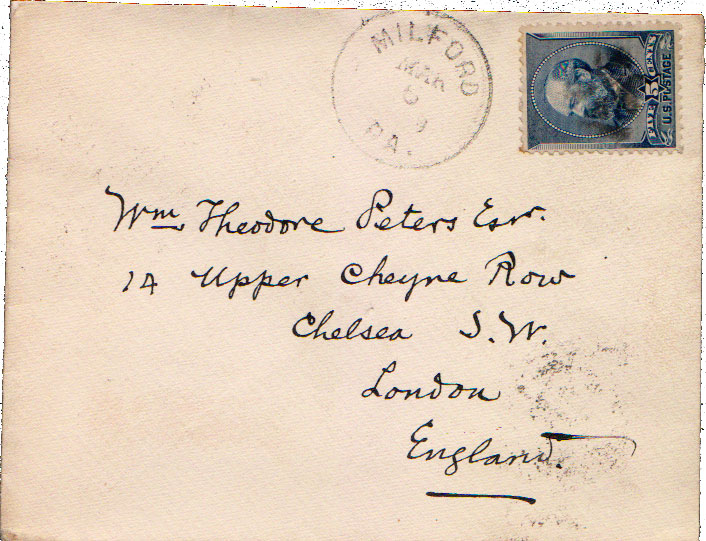 MILFORD
MAR
PA.
FIVE 5 CENTS
U.S. POSTAGE
Wm Theodore Peters Esqr.
14 Upper Cheyne Row
Chelsea S.W.
London
England.